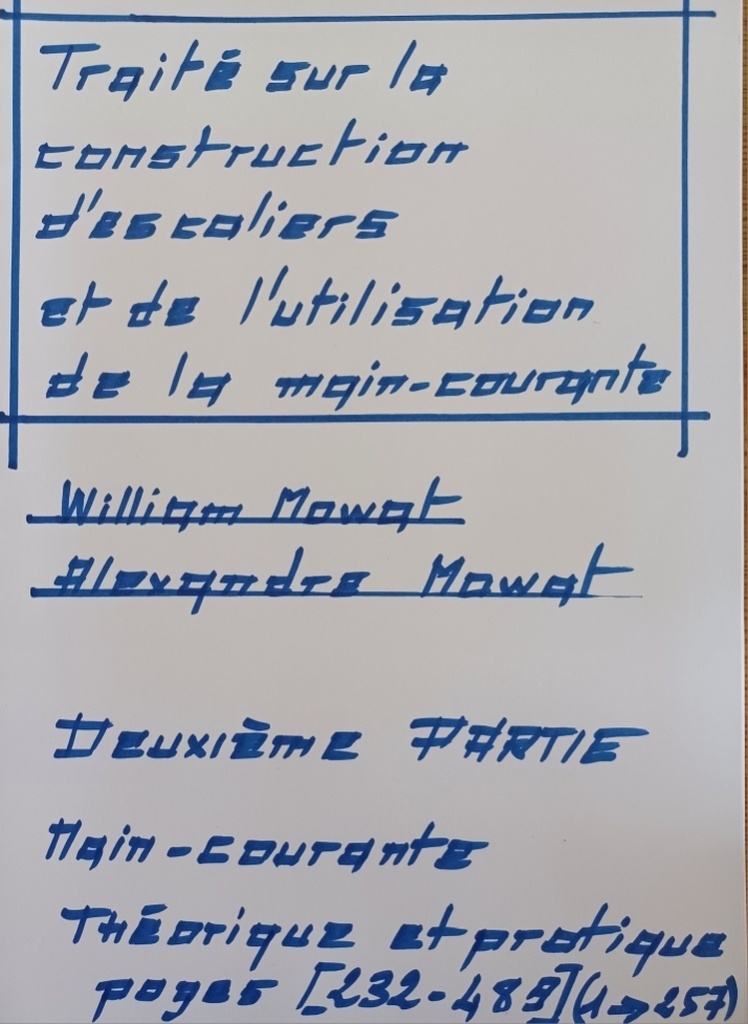 Traité sur la
construction
d'escaliers
et de l'utilisation
de la main-courante
William Mowat
Alexandre Mowat
Deuxième PARTIE
Main-courante
Théorique et pratique
pages [232-489](1→257)